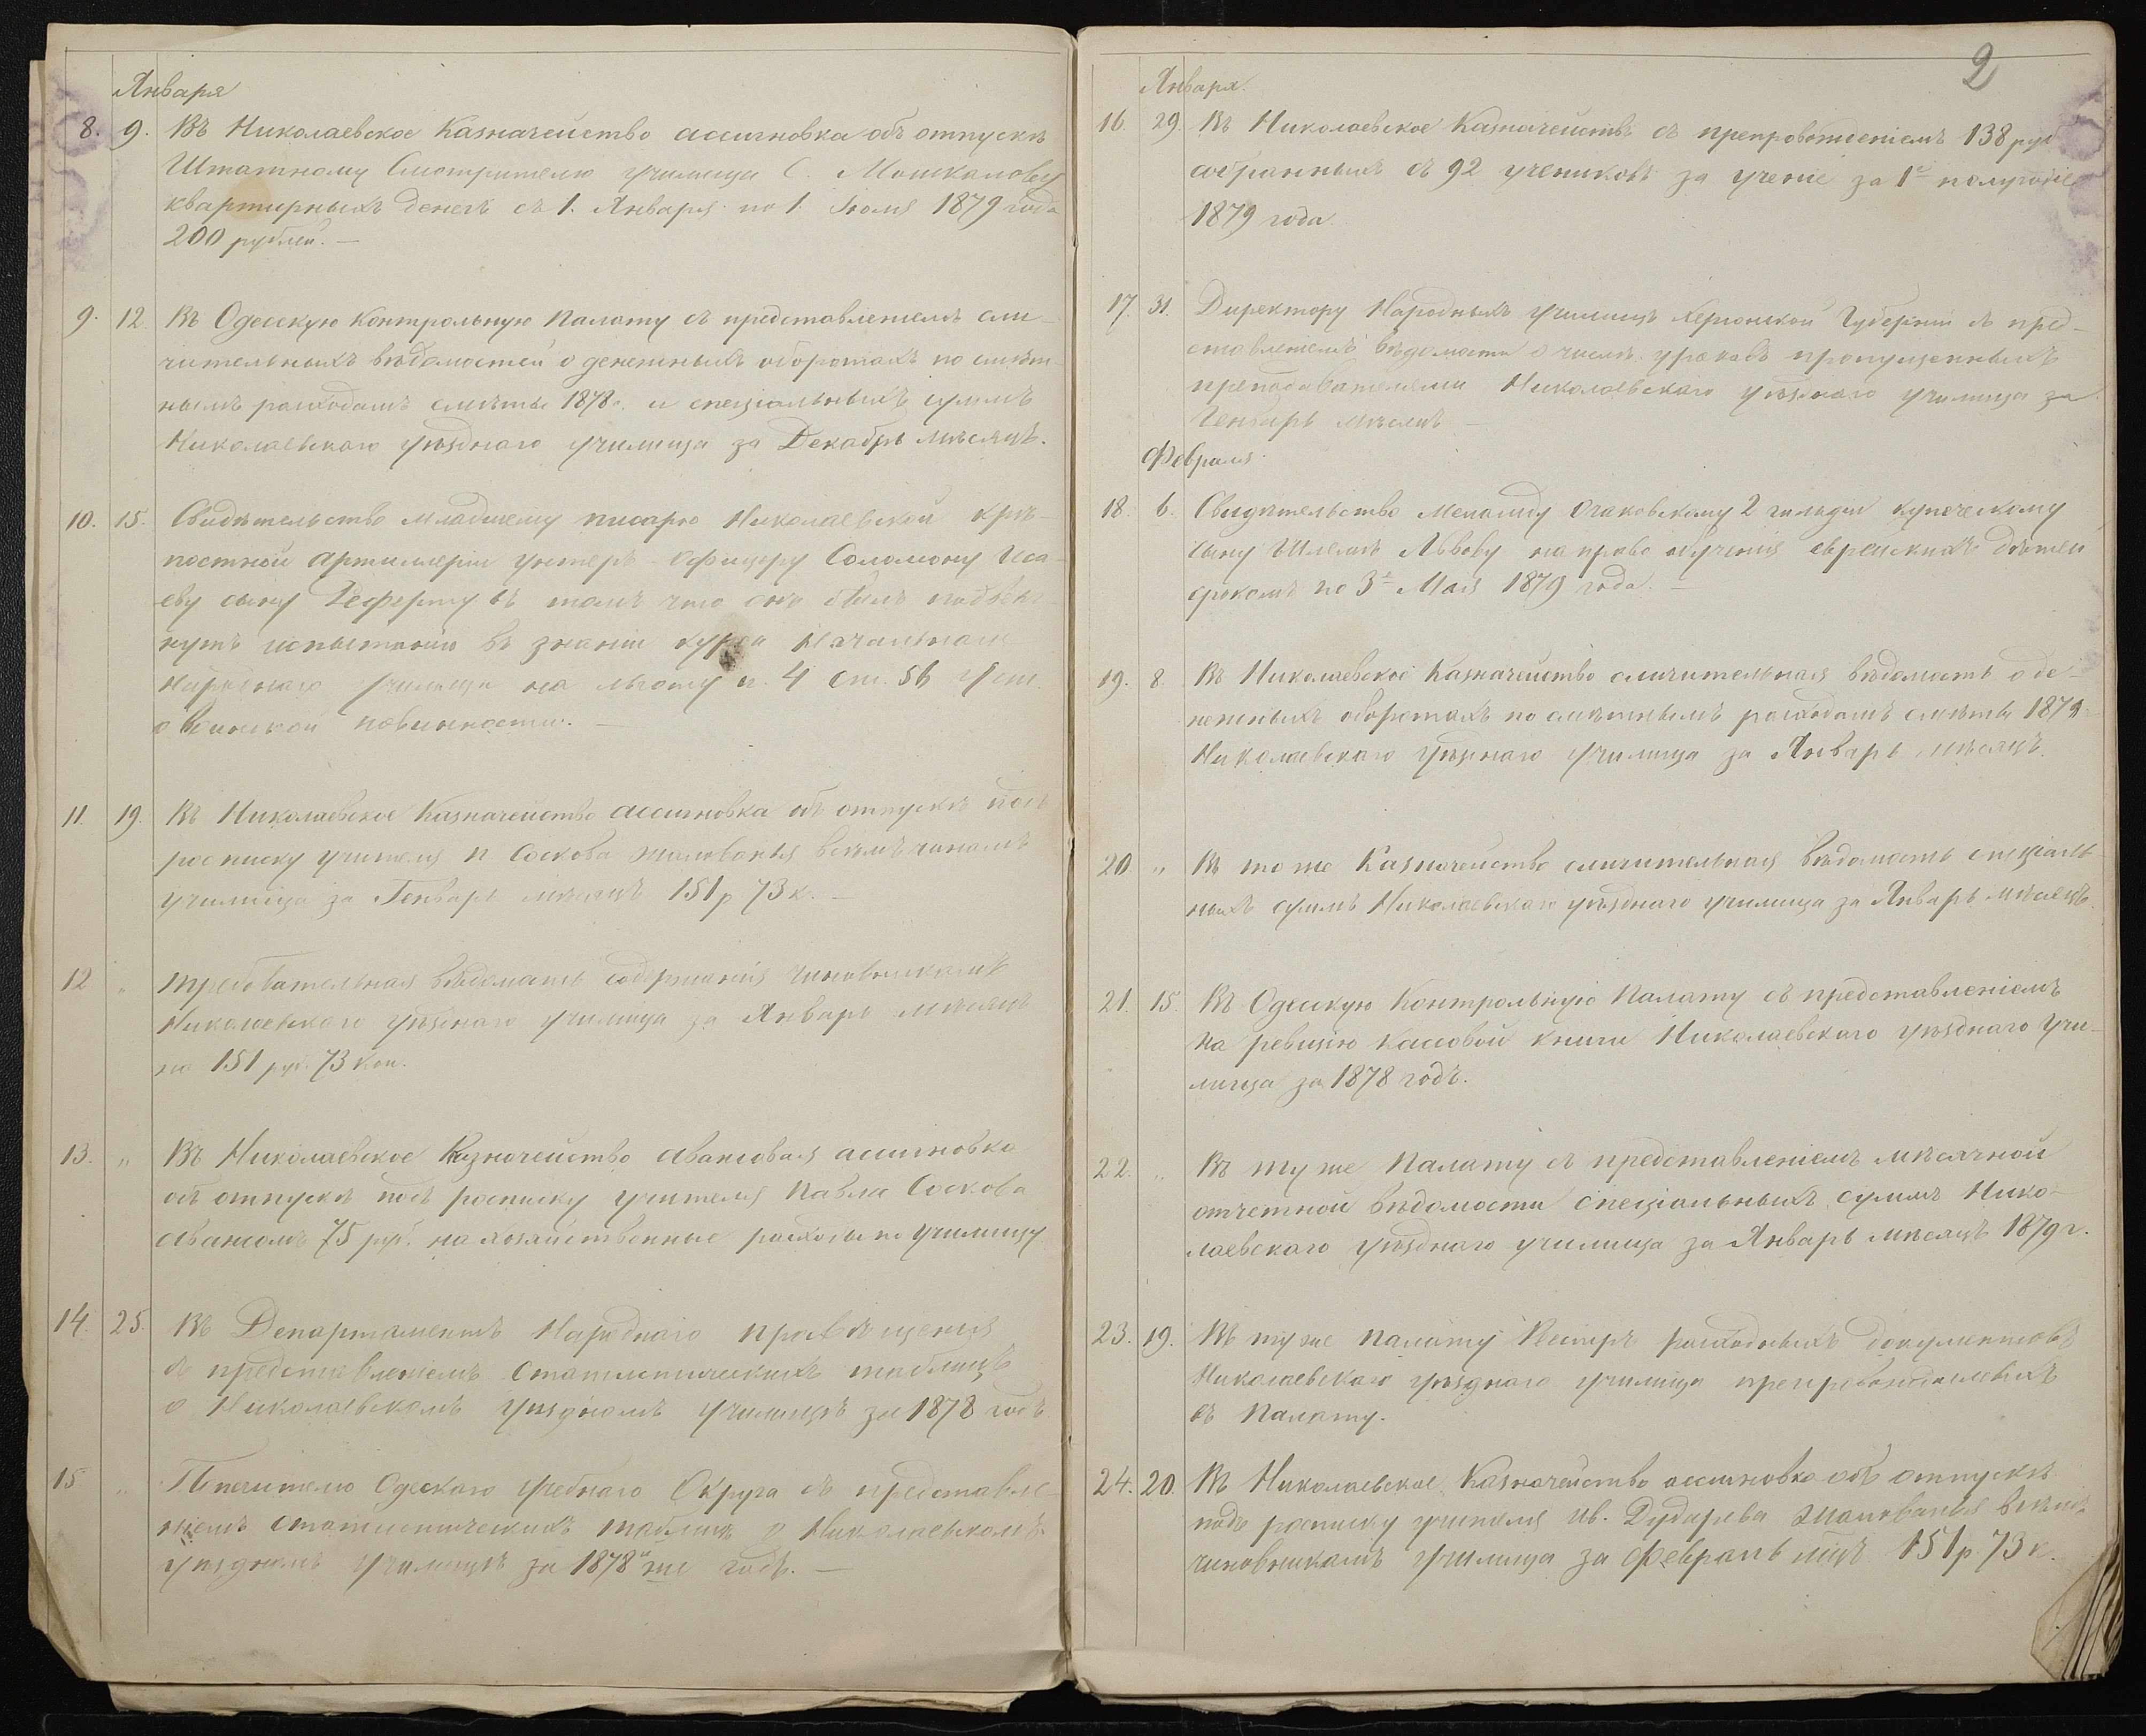 Января
8. 9. Въ Николаевское Казначейство ассигновка объ отпускѣ
Штатному Смотрителю училища С. Мошкалову
квартирныхъ денегъ съ 1. Января по 1. Іюля 1879 года
200 рублей. —
9. 12. Въ Одесскую Контрольную Палату съ представленіемъ сли-
чительныхъ вѣдомостей о денежныхъ оборотахъ по смѣт-
нымъ расходамъ смѣты 1878 г. и спеціальныхъ суммъ
Николаевскаго уѣзднаго училища за Декабрь мѣсяцъ.
10. 15. Свидѣтельство младшему писарю Николаевской крѣ-
постной артиллеріи унтеръ-офицеру Соломону Иса-
еву сыну въ томъ что онъ былъ подверг-
нутъ испытанію въ знаніи курса Начальнаго
Народнаго училища на льготу п. 4 ст. 56 Уст.
о воинской повинности. —
11. 19. Въ Николаевское Казначейство ассигновка объ отпускѣ подъ
росписку учителя П. Соскова жалованья всѣмъ чинамъ
училища за Генварь мѣсяцъ 151 р 73 к. —
12 „ Требовательная вѣдомость содержанія чиновникамъ
Николаевскаго уѣзднаго училища за Январь мѣсяцъ
на 151 руб. 73 коп.
13. „ Въ Николаевское Казначейство авансовая ассигновка
объ отпускѣ подъ росписку учителя Павла Соскова
авансомъ 75 руб. на хозяйственные расходы по училищу
14. 25. Въ Департаментъ Народнаго просвѣщенія
съ представленіемъ статистическихъ таблицъ
о Николаевскомъ уѣздномъ училищѣ за 1878 годъ
15 „ Попечителю Одесскаго Учебнаго Округа съ представле-
ніемъ статистическихъ таблицъ о Николаевскомъ
уѣздномъ училищѣ за 1878 же годъ. —
2
Января.
16. 29. Въ Николаевское Казначейство съ препровожденіемъ 138 руб
собранныхъ съ 92 учениковъ за ученіе за 1е полугодіе
1879 года
17. 31. Директору Народныхъ училищъ Херсонской Губерніи съ пред-
ставленіемъ вѣдомости о числѣ уроковъ пропущенныхъ
преподавателями Николаевскаго уѣзднаго училища за
Генварь мѣсяцъ —
Февраля.
18. 6. Свидѣтельство Меламиду Очаковскому 2 гильдіи купеческому
сыну Львову на право обученія еврейскихъ дѣтей
срокомъ по 3е Мая 1879 года. —
19. 8. Въ Николаевское Казначейство сличительная вѣдомость о де-
нежныхъ оборотахъ по смѣтнымъ расходамъ смѣты 1879
Николаевскаго уѣзднаго училища за Январь мѣсяцъ.
20 „ Въ то же Казначейство сличительная вѣдомость спеціаль-
ныхъ суммъ Николаевскаго уѣзднаго училища за Январь мѣсяцъ.
21. 15. Въ Одесскую Контрольную Палату съ представленіемъ
на ревизію кассовой книги Николаевскаго уѣзднаго учи-
лища за 1878 годъ.
22. „ Въ ту же Палату съ представленіемъ мѣсячной
отчетной вѣдомости спеціальныхъ суммъ Нико-
лаевскаго уѣзднаго училища за Январь мѣсяцъ 1879 г.
23. 19. Въ ту же Палату Реестръ расходныхъ документовъ
Николаевскаго уѣзднаго училища препровождаемыхъ
въ Палату.
24. 20. Въ Николаевское Казначейство ассигновка объ отпускѣ
подъ росписку учителя Ив. Дударева жалованья всѣмъ
чиновникамъ училища за Февраль мцъ 151 р. 73 к.